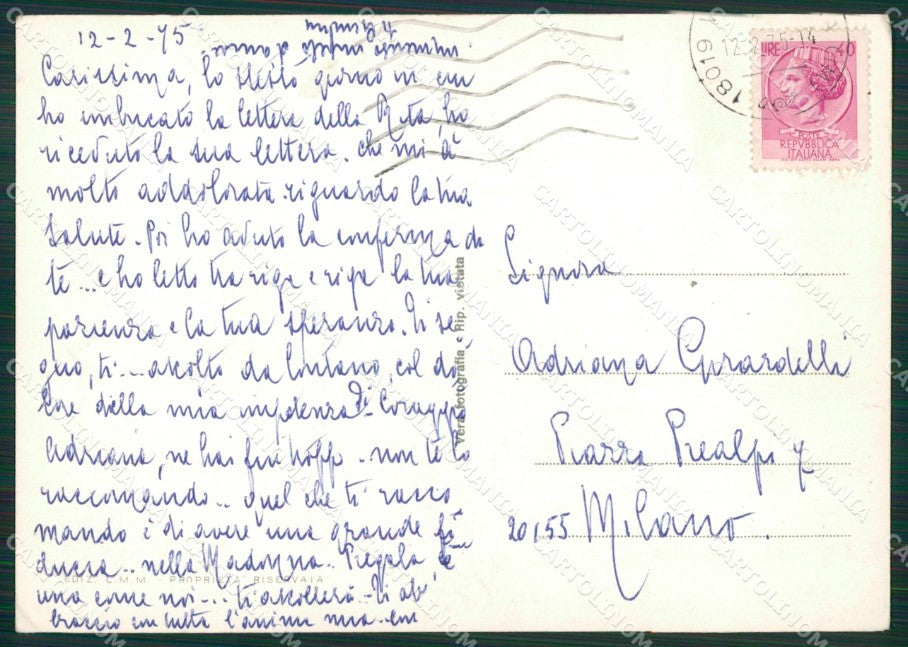 12-2-75
Carissima, lo stesso giorno in cui
ho imbucato la lettera della Rita, ho
ricevuto la sua lettera. che mi à
molto addolorata riguardo la tua
salute. Poi ho avuto la conferma da
te... e ho letto tra riga e riga la tua
pazienza e la tua speranza. Ti se-
guo, ti... ascolto da lontano, col do-
lore della mia impotenza. Coraggio
Adriana, ne hai fin troppo. non te lo
raccomando.. quel che ti racco
mando è di avere una grande fi-
ducia.. nella Madonna.. Pregala, è
una come noi... ti ascolterà. Ti ab
braccio con tutta l'anima mia..
Signora
Adriana Girardelli
Piazza Prealpi 7
20155 Milano.
Vera fotografia - Rip. vietata
EDIZ. C.M.M. - PROPRIETA' RISERVATA
18019
12.2.75-14
LIRE 40
POSTE
REPVBBLICA
ITALIANA
CARTOLINOMANIA